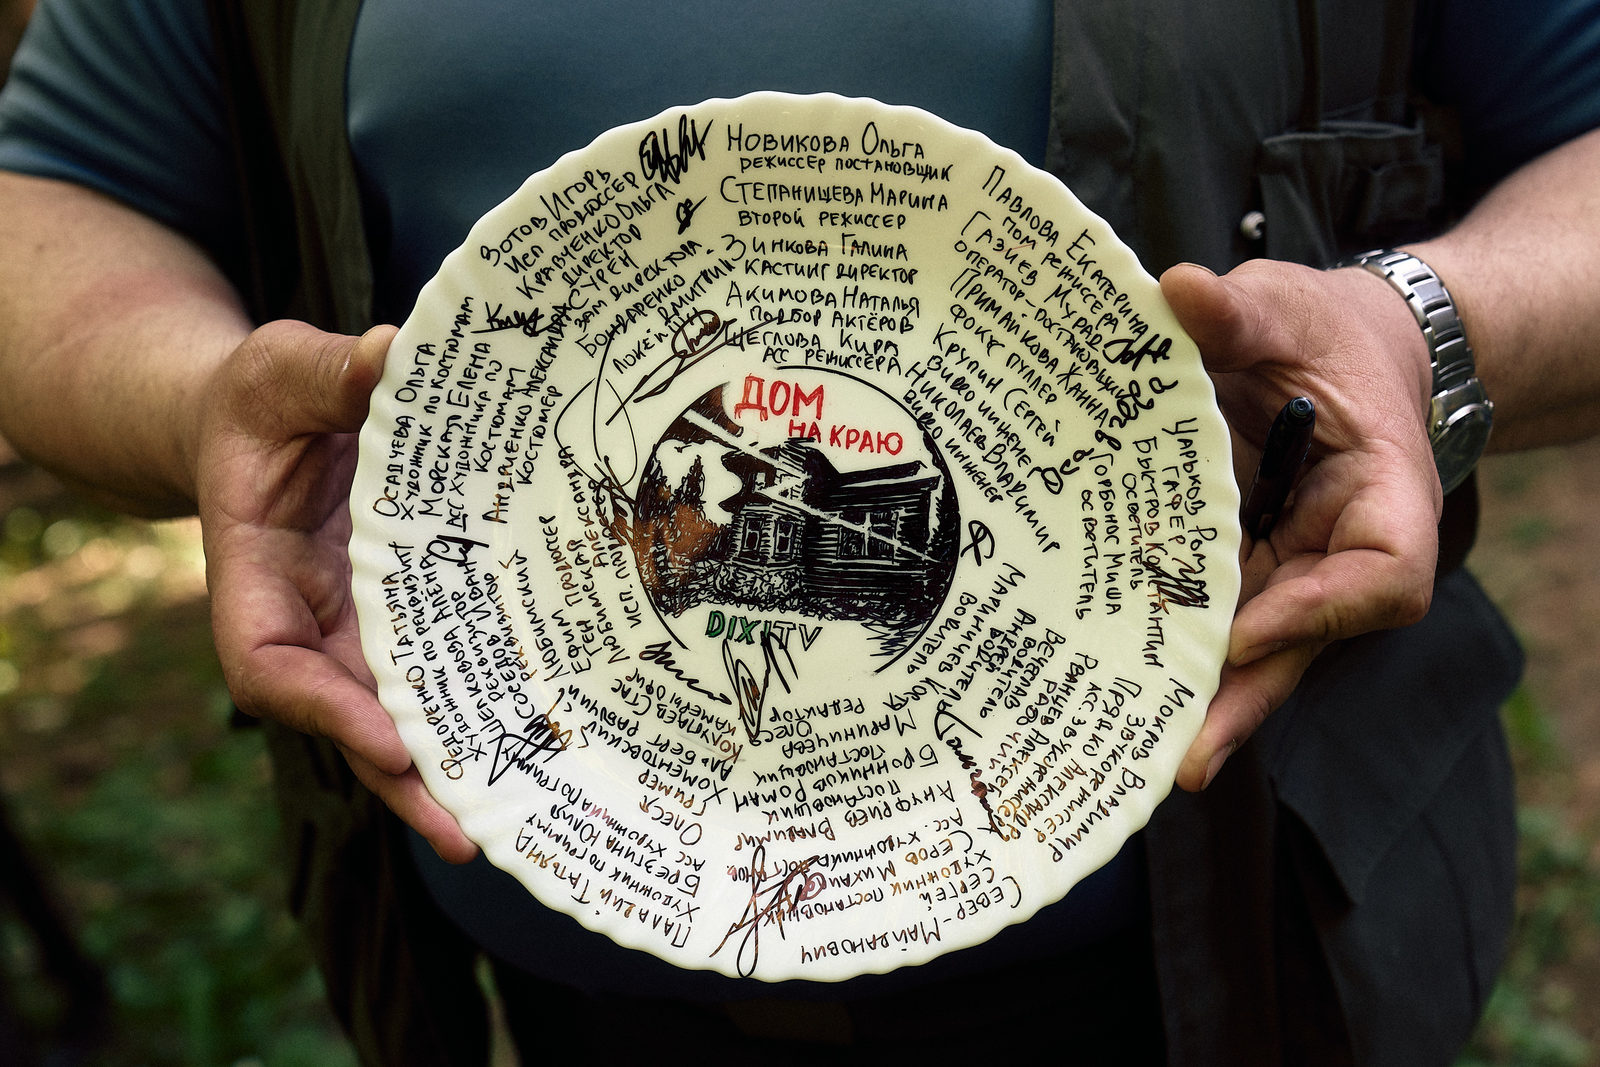 Новикова Ольга
режиссёр постановщик
Степанищева Марина
второй режиссер
Зинкова Галина
кастинг директор
Акимова Наталья
подбор актёров
Щеглова Кира
асс режиссёра
Павлова Екатерина
пом режиссера
Газиев Мурад
оператор-постановщик
Примайкова Жанна
фокус пуллер
Крупин Сергей
видео инженер
Николаев Владимир
видео инженер
Царьков Роман
гафер
Быстров Константин
осветитель
Горбонос Миша
осветитель
Мокров Владимир
звукорежиссер
Прядко Александр
асс. звукорежиссера
Рванцев Алексей
Вечеслав
водитель
Андрей
водитель
Мариничев Костя
водитель
Север-Майданович
Сергей
художник постановщик
Серов Михаил
асс. художника постанов.
Ануфриев Владимир
постановщик
Бронников Роман
постановщик
Мариничева Олеся
редактор
Паладий Татьяна
художник по гриму
Брезгина Юлия
асс художника по гриму
Олеся
гример
Хоментовский
Альберт рабочий
Колупаев Стас
камеры
Федоренко Татьяна
художник по реквизиту
Шелковова Алёна
реквизитор
Соседов Иван
реквизитор
Любимский
Ефим продюсер
ген
Любимская Александра
исп. продюсер
Осадчева Ольга
художник по костюмам
Морскатая Елена
асс художника по
костюмам
Андриенко Александра
костюмер
Зотов Игорь
исп продюссер
Кравченко Ольга
директор
Сурен
зам директора
Бондаренко Дмитрий
локейшн
ДОМ
НА КРАЮ
DIXI TV